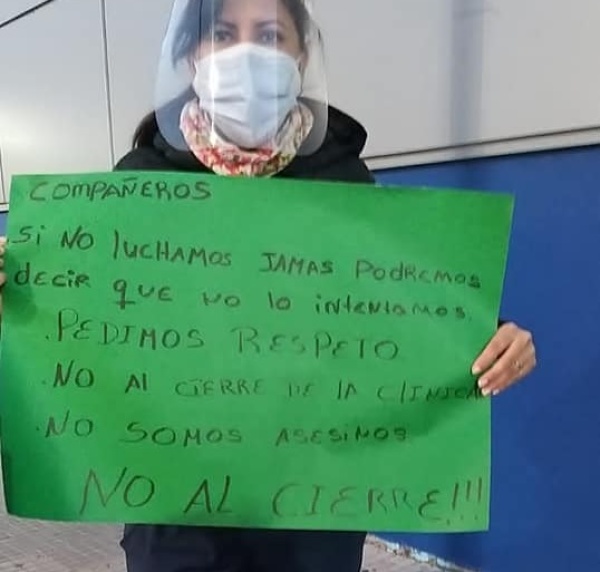 COMPAÑEROS
SI NO lUCHAMOS JAMAS PODREMOS
decir que no lo intentamos.
.PEDIMOS RESPETO
.NO Al CIERRE DE lA ClINICA
.NO SOMOS ASESINOS
NO AL CIERRE!!!